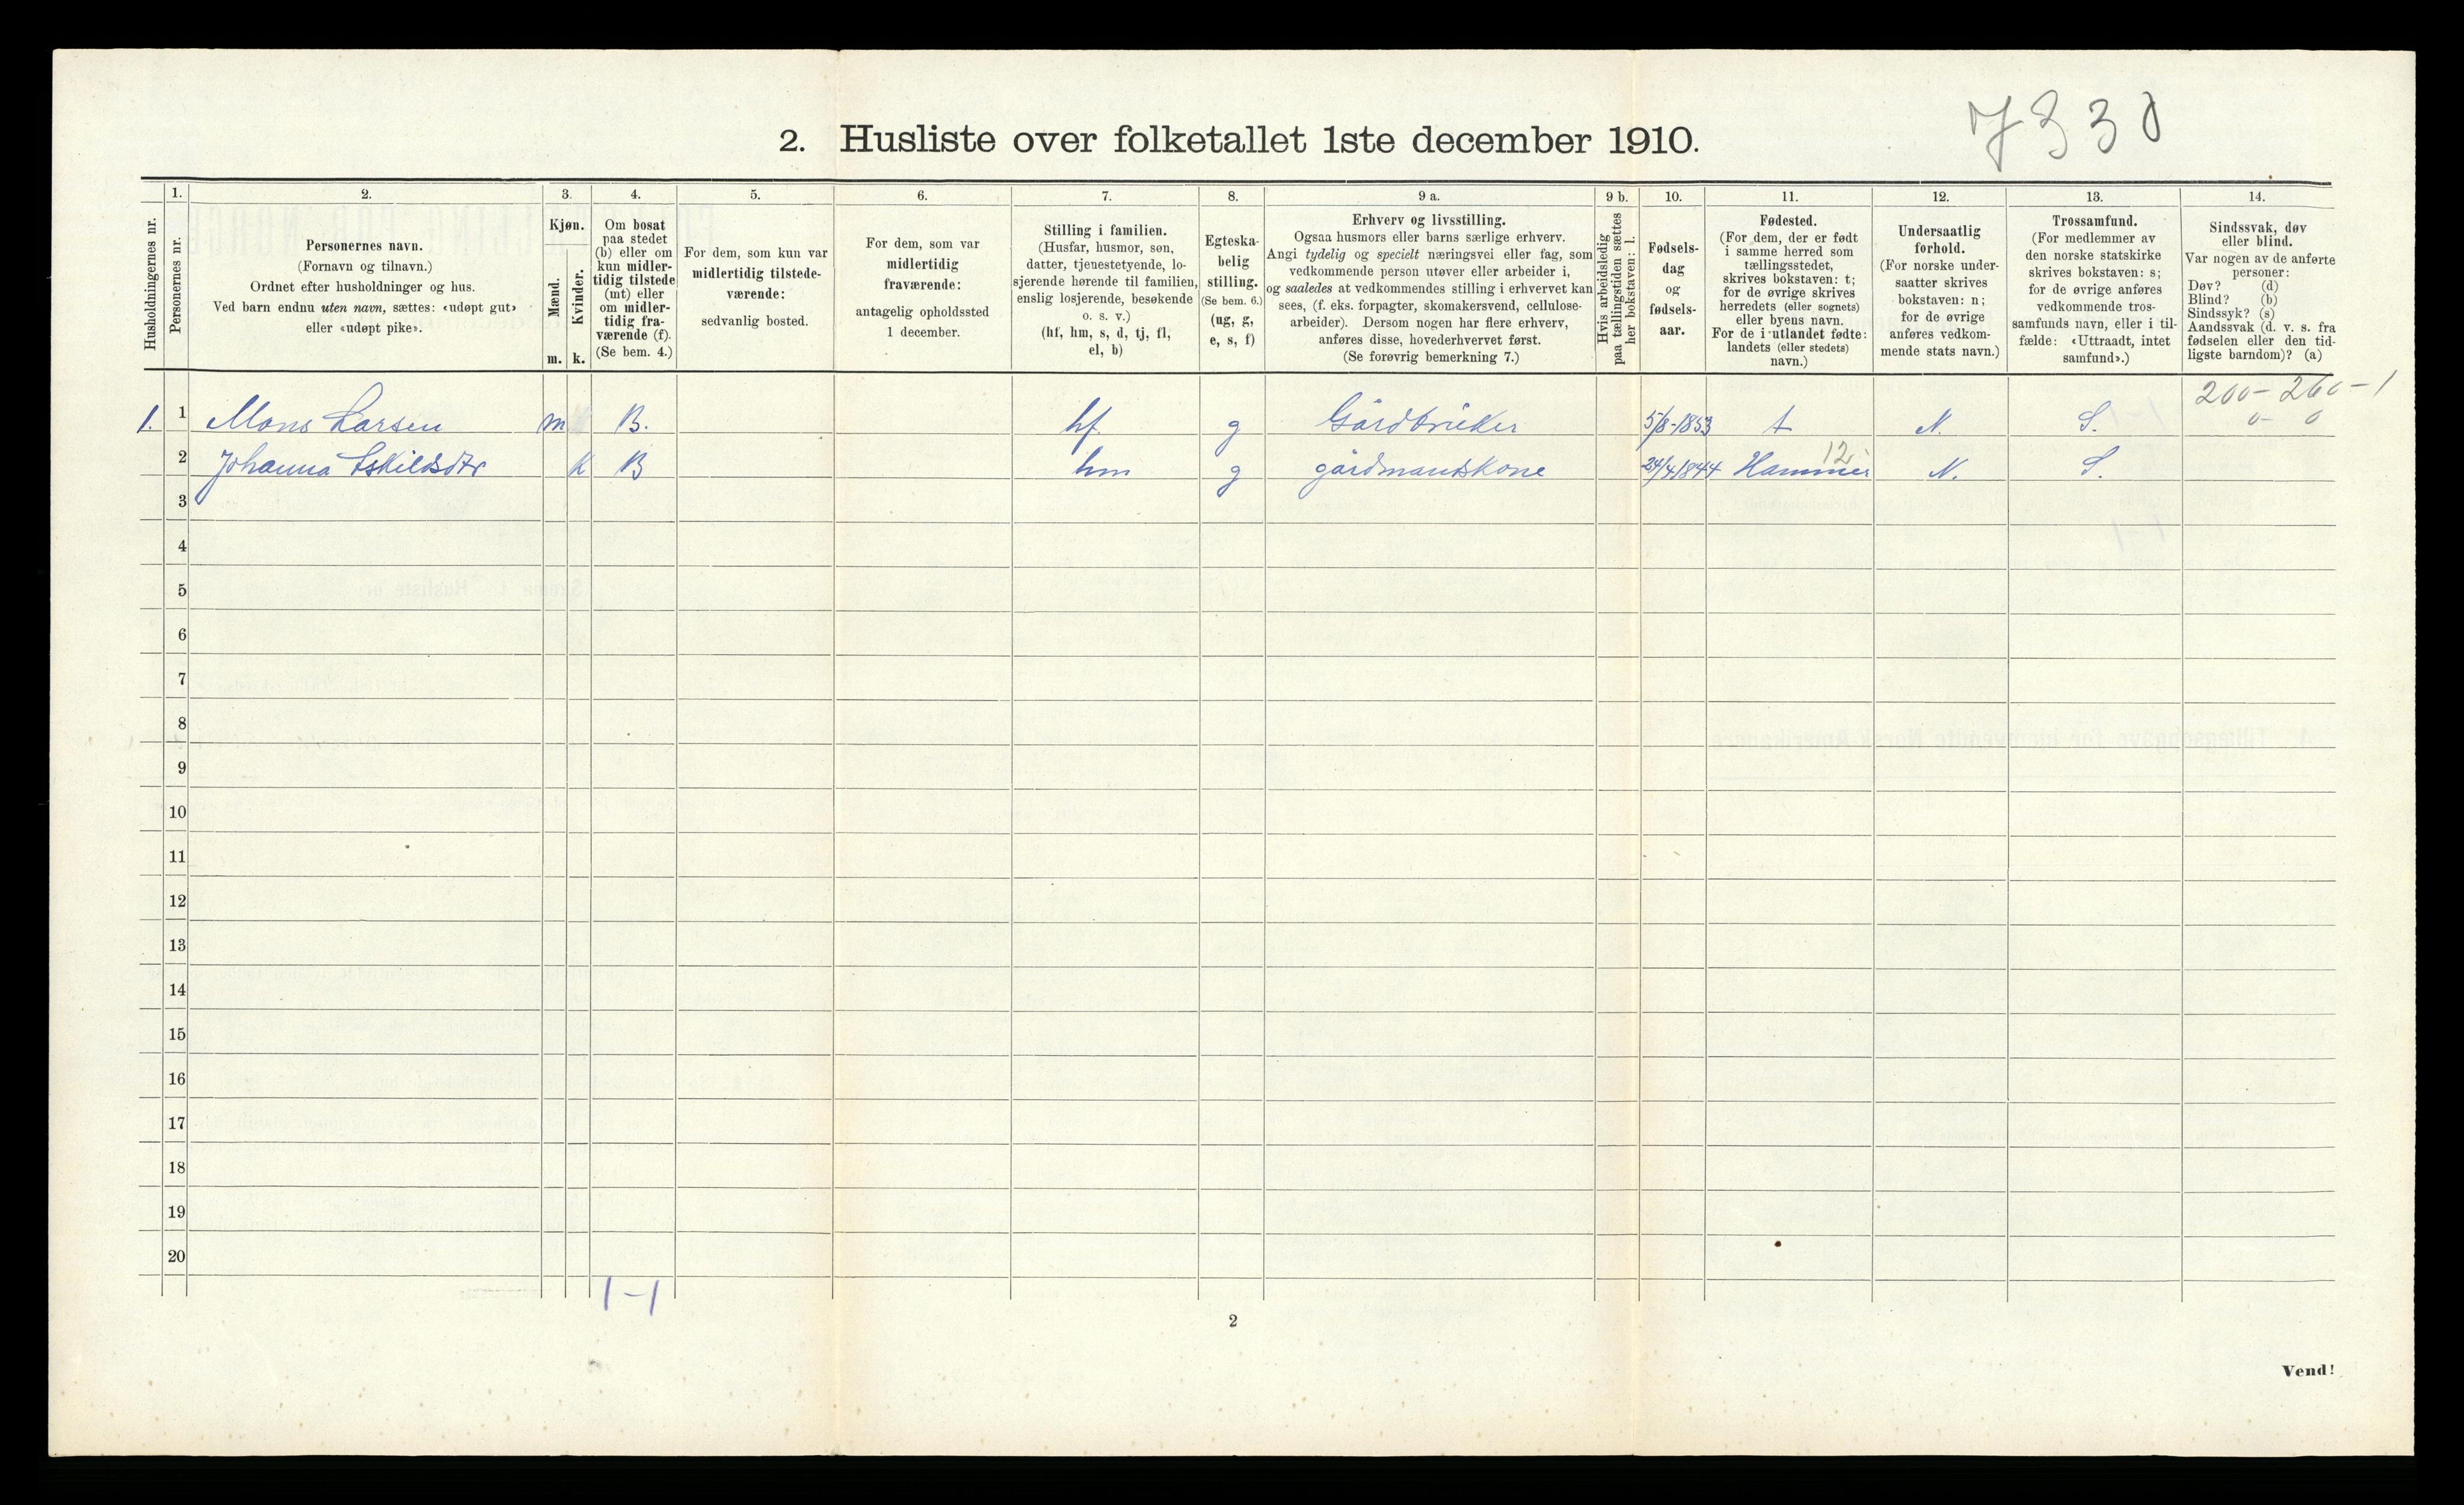 7330
2. Husliste over folketallet 1ste december 1910.
Husholdningernes nr.
1.
Personernes nr.
2.
Personernes navn.
(Fornavn og tilnavn.)
Ordnet efter husholdninger og hus.
Ved barn endnu uten navn, sættes: «udøpt gut»
eller «udøpt pike».
3.
Kjøn.
Mænd.
m.
Kvinder.
k.
4.
Om bosat
paa stedet
(b) eller om
kun midler-
tidig tilstede
(mt) eller
om midler-
tidig fra-
værende (f).
(Se bem. 4.)
5.
For dem, som kun var
midlertidig tilstede-
værende:
sedvanlig bosted.
6.
For dem, som var
midlertidig
fraværende:
antagelig opholdssted
1 december.
7.
Stilling i familien.
(Husfar, husmor, søn,
datter, tjenestetyende, lo-
sjerende hørende til familien,
enslig losjerende, besøkende
o. s. v.)
(hf, hm, s, d, tj, fl,
el, b)
8.
Egteska-
belig
stilling.
(Se bem. 6.)
(ug, g,
e, s, f)
9 a.
Erhverv og livsstilling.
Ogsaa husmors eller barns særlige erhverv.
Angi tydelig og specielt næringsvei eller fag, som
vedkommende person utøver eller arbeider i,
og saaledes at vedkommendes stilling i erhvervet kan
sees, (f. eks. forpagter, skomakersvend, cellulose-
arbeider). Dersom nogen har flere erhverv,
anføres disse, hovederhvervet først.
(Se forøvrig bemerkning 7.)
9 b.
Hvis arbeidsledig
paa tællingstiden sættes
her bokstaven: l.
10.
Fødsels-
dag
og
fødsels-
aar.
11.
Fødested.
(For dem, der er født
i samme herred som
tællingsstedet,
skrives bokstaven: t;
for de øvrige skrives
herredets (eller sognets)
eller byens navn.
For de i utlandet fødte:
landets (eller stedets)
navn.)
12.
Undersaatlig
forhold.
(For norske under-
saatter skrives
bokstaven: n;
for de øvrige
anføres vedkom-
mende stats navn.)
13.
Trossamfund.
(For medlemmer av
den norske statskirke
skrives bokstaven: s;
for de øvrige anføres
vedkommende tros-
samfunds navn, eller i til-
fælde: «Uttraadt, intet
samfund».)
14.
Sindssvak, døv
eller blind.
Var nogen av de anførte
personer:
Døv? (d)
Blind? (b)
Sindssyk? (s)
Aandssvak (d. v. s. fra
fødselen eller den tid-
ligste barndom)? (a)
200 - 260 - 1
0 - 0
1. 1 Mons Larsen m B. hf g Gårdbruker 5/8-1853 t N. S.
12
2 Johanna Eskildsdtr k B hm g gårdmandskone 24/4 1844 Hammer N. S.
3
4
5
6
7
8
9
10
11
12
13
14
15
16
17
18
19
20
1-1
2
Vend!